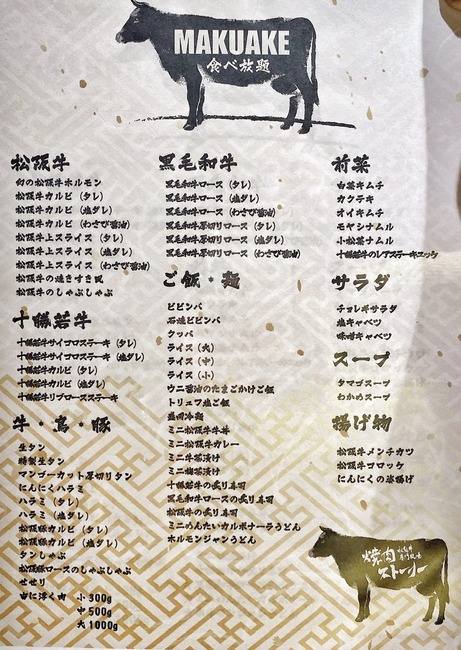 MAKUAKE
食べ放題
松阪牛
幻の松阪牛ホルモン
松阪牛カルビ（タレ）
松阪牛カルビ（塩ダレ）
松阪牛カルビ（わさび醤油）
松阪牛上スライス（タレ）
松阪牛上スライス（塩ダレ）
松阪牛上スライス（わさび醤油）
松阪牛の焼きすき
松阪牛のしゃぶしゃぶ
十勝若牛
十勝若牛サイコロステーキ（タレ）
十勝若牛サイコロステーキ（塩ダレ）
十勝若牛カルビ（タレ）
十勝若牛カルビ（塩ダレ）
十勝若牛リブロースステーキ
牛・鳥・豚
生タン
特製生タン
マンゴーカット厚切りタン
にんにくハラミ
ハラミ（タレ）
ハラミ（塩ダレ）
松阪豚カルビ（タレ）
松阪豚カルビ（塩ダレ）
タンしゃぶ
松阪豚ロースのしゃぶしゃぶ
せせり
宙に浮く肉 小300g
中500g
大1000g
黒毛和牛
黒毛和牛ロース（タレ）
黒毛和牛ロース（塩ダレ）
黒毛和牛ロース（わさび醤油）
黒毛和牛厚切りロース（タレ）
黒毛和牛厚切りロース（塩ダレ）
黒毛和牛厚切りロース（わさび醤油）
ご飯・麺
ビビンバ
石焼ビビンバ
クッパ
ライス（大）
ライス（中）
ライス（小）
ウニ醤油のたまごかけご飯
トリュフ塩ご飯
盛岡冷麺
ミニ松阪牛牛丼
ミニ松阪牛カレー
ミニ牛茶漬け
ミニ梅茶漬け
十勝若牛の炙り寿司
黒毛和牛ロースの炙り寿司
松阪牛の炙り寿司
ミニめんたいカルボナーラうどん
ホルモンジャンうどん
前菜
白菜キムチ
カクテキ
オイキムチ
モヤシナムル
小松菜ナムル
十勝若牛のレアステーキユッケ
サラダ
チョレギサラダ
塩キャベツ
味噌キャベツ
スープ
タマゴスープ
わかめスープ
揚げ物
松阪牛メンチカツ
松阪牛コロッケ
にんにくの素揚げ
焼肉
ストーリー